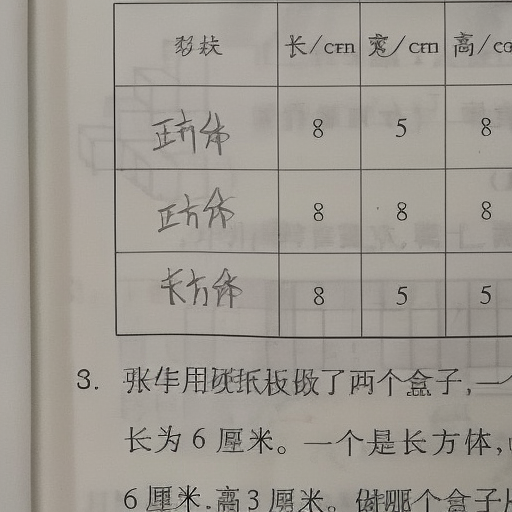 长/cm 宽/cm 高/c
正方体 8 5 8
正方体 8 8 8
长方体 8 5 5
3. 张华用硬纸板做了两个盒子,一个
长为6厘米。一个是长方体,
6厘米,高3厘米。做哪个盒子